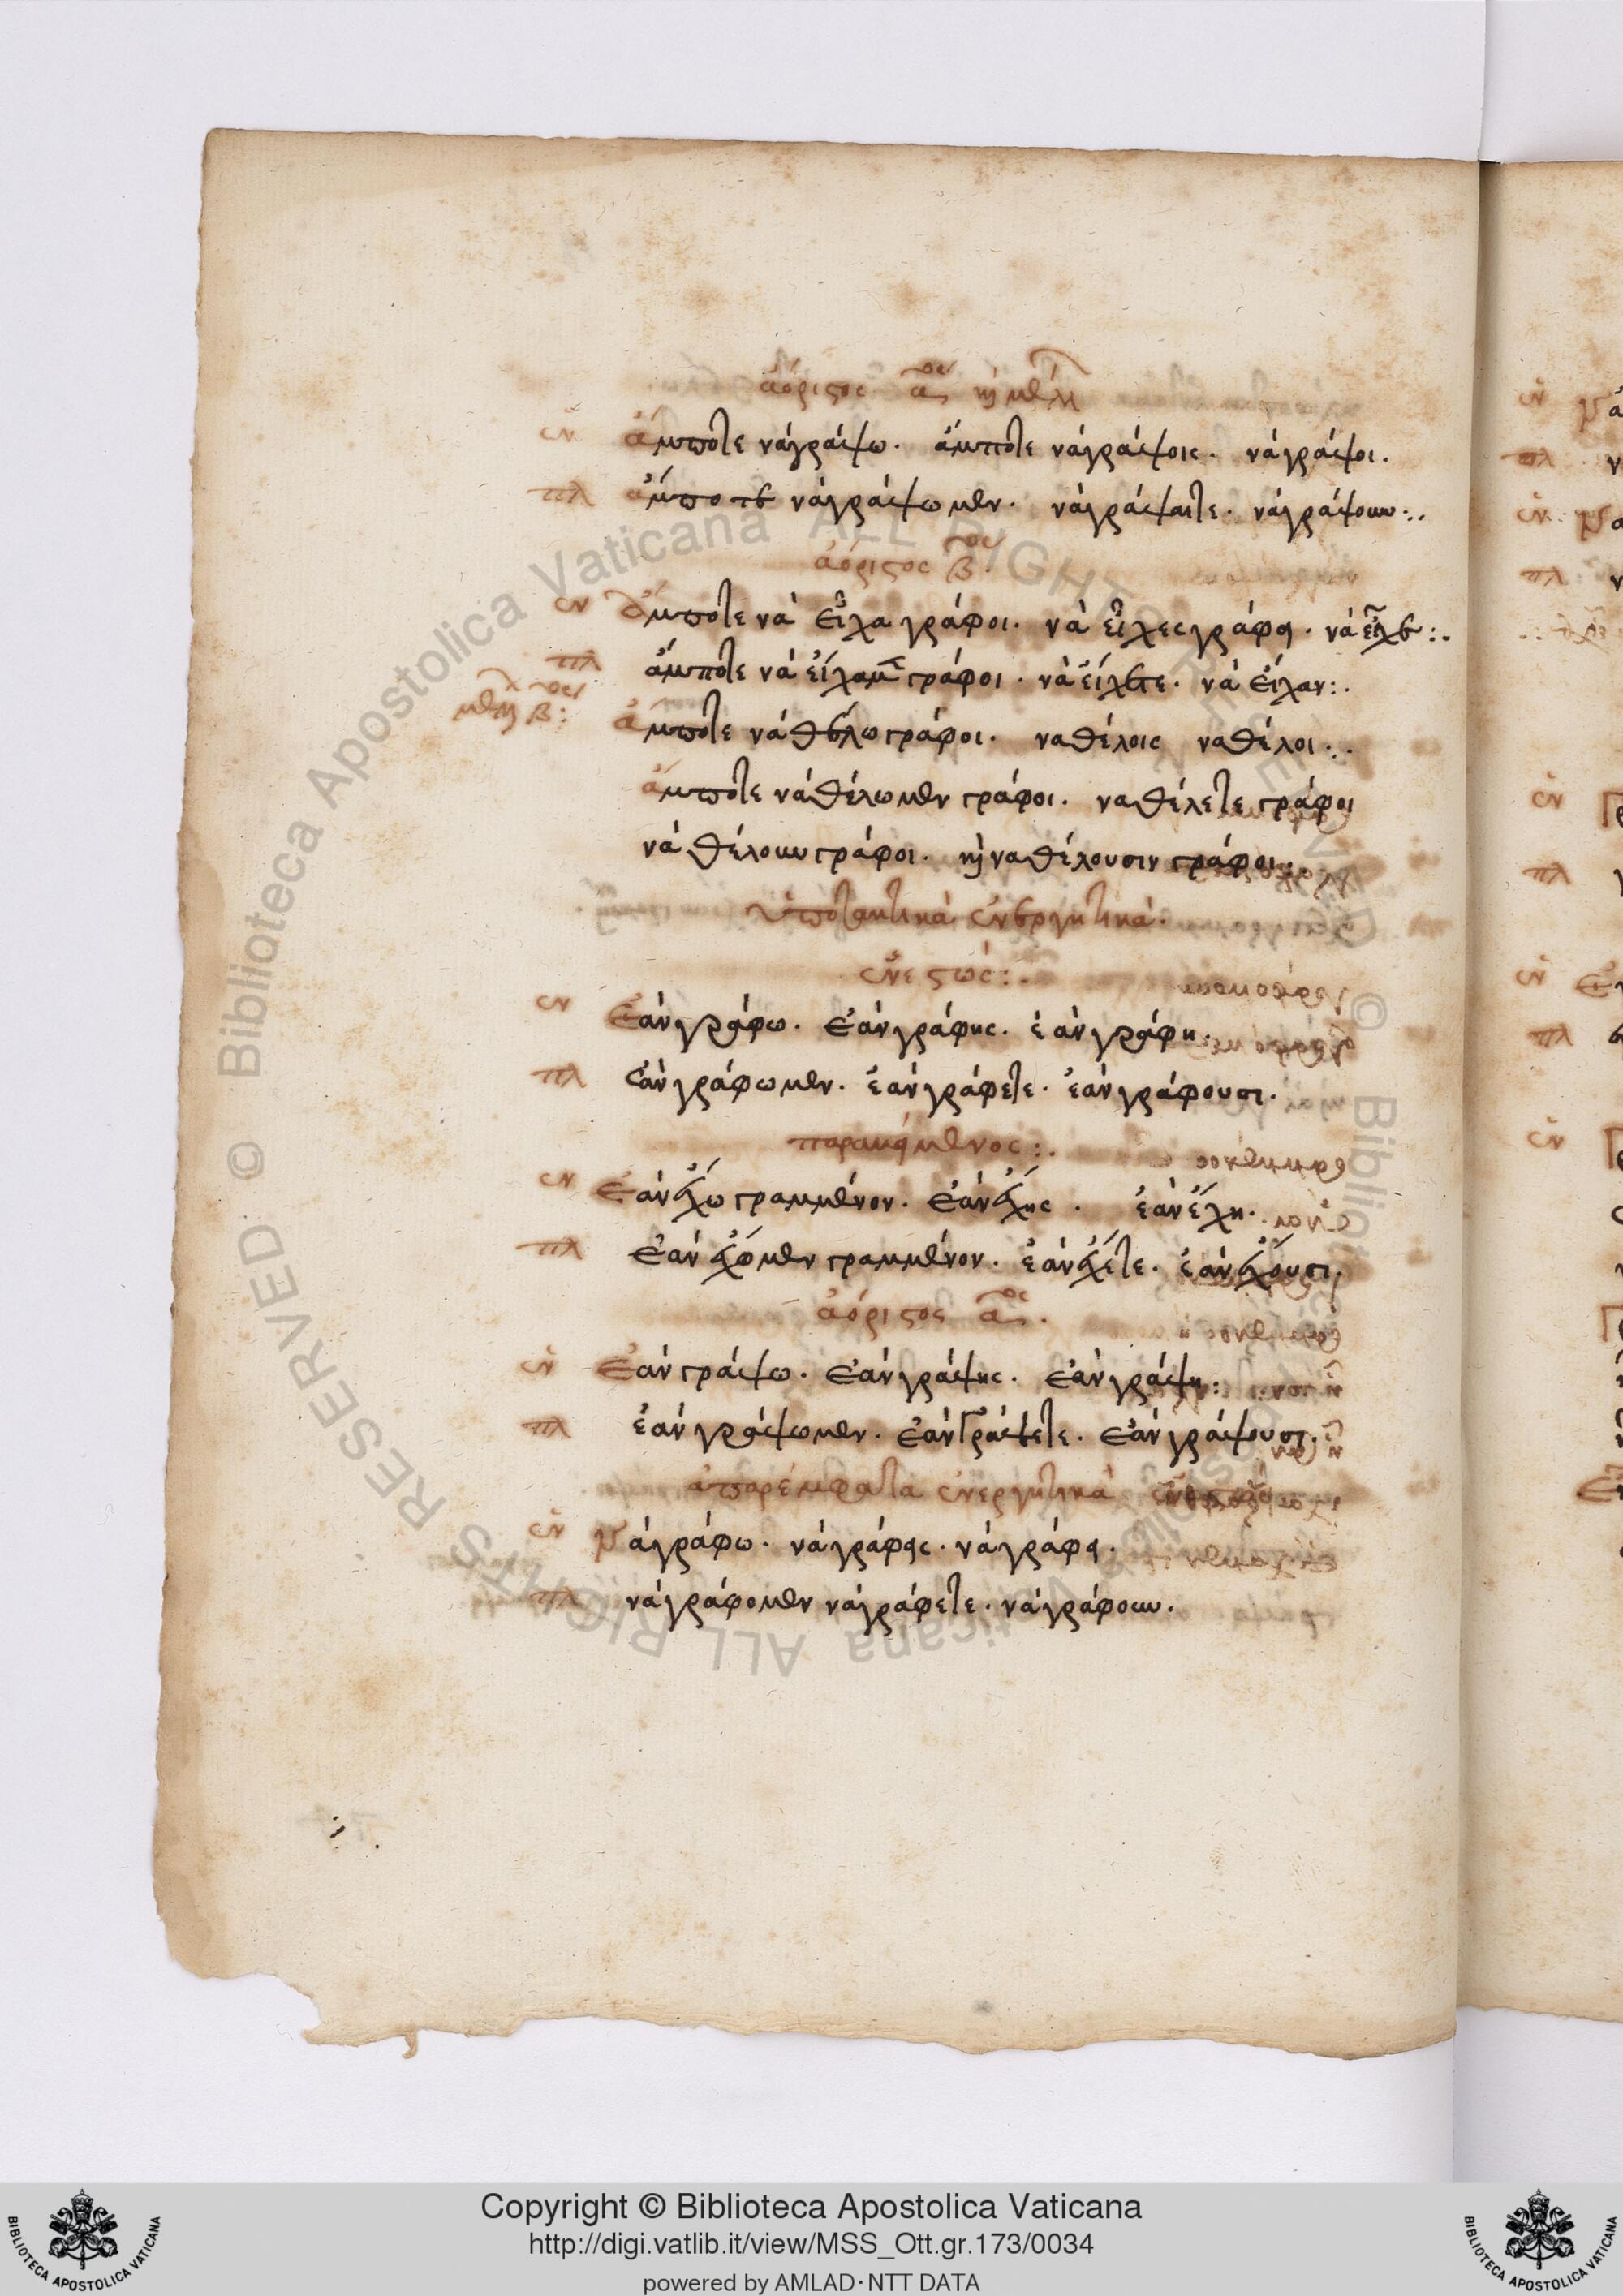 ἀόριστος α^ος κ(αὶ) μέλλ
ἑν ἄμποτε νάγράψω· ἄμποτε νάγράψοις· νάγράψοι·
πλ ἄμποτε νάγράψωμεν· νάγράψατε· νάγράψουν:.
ἀόριστος β^ος·
ἑν ἄμποτε νὰ εἶχα γράφοι· νὰ εἶχες γράφει· νὰ εἶχε:.
πλ ἄμποτε νὰ εἴχαμε γράφοι· νὰ εἴχετε· νὰ εἴχαν:.
μέλλ β^ος: ἄμποτε νά θέλω γράφοι· ναθέλοις ναθέλοι:.
ἄμποτε νάθέλωμεν γράφοι· ναθέλετε γράφοι
νά θέλουν γράφοι· κ(αὶ) ναθέλουσιν γράφοι·
ὑποτακτικὰ ἐνεργητικά·
ἐνεστώς:.
ἑν Ἐάν γράφω· ἐάν γράφης· ἐάν γράφη·
πλ ἐάν γράφωμεν· ἐάν γράφετε· ἐάν γράφουσι·
παρακείμενος:.
ἑν Ἐάν ἔχω γραμμένον· ἐάν ἔχης· ἐάν ἔχη·
πλ ἐάν ἔχομεν γραμμένον· ἐάν ἔχετε· ἐάν ἔχουσι·
ἀόριστος α^ος·
ἑν Ἐάν γράψω· ἐάν γράψης· ἐάν γράψη:
πλ ἐάν γράψωμεν· ἐάν γράψετε· ἐάν γράψουσι·
ἀπαρέμφατα ἐνεργητικὰ
ἑν Νάγράφω· νάγράφεις· νάγράφει·
πλ νάγράφομεν νάγράφετε· νάγράφουν·
Copyright © Biblioteca Apostolica Vaticana
http://digi.vatlib.it/view/MSS_Ott.gr.173/0034
powered by AMLAD·NTT DATA